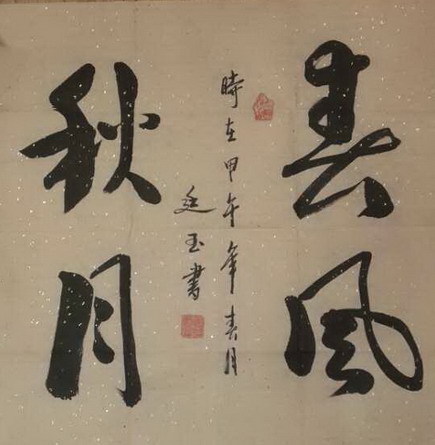 春風
秋月
時在甲午年春月
廷玉書